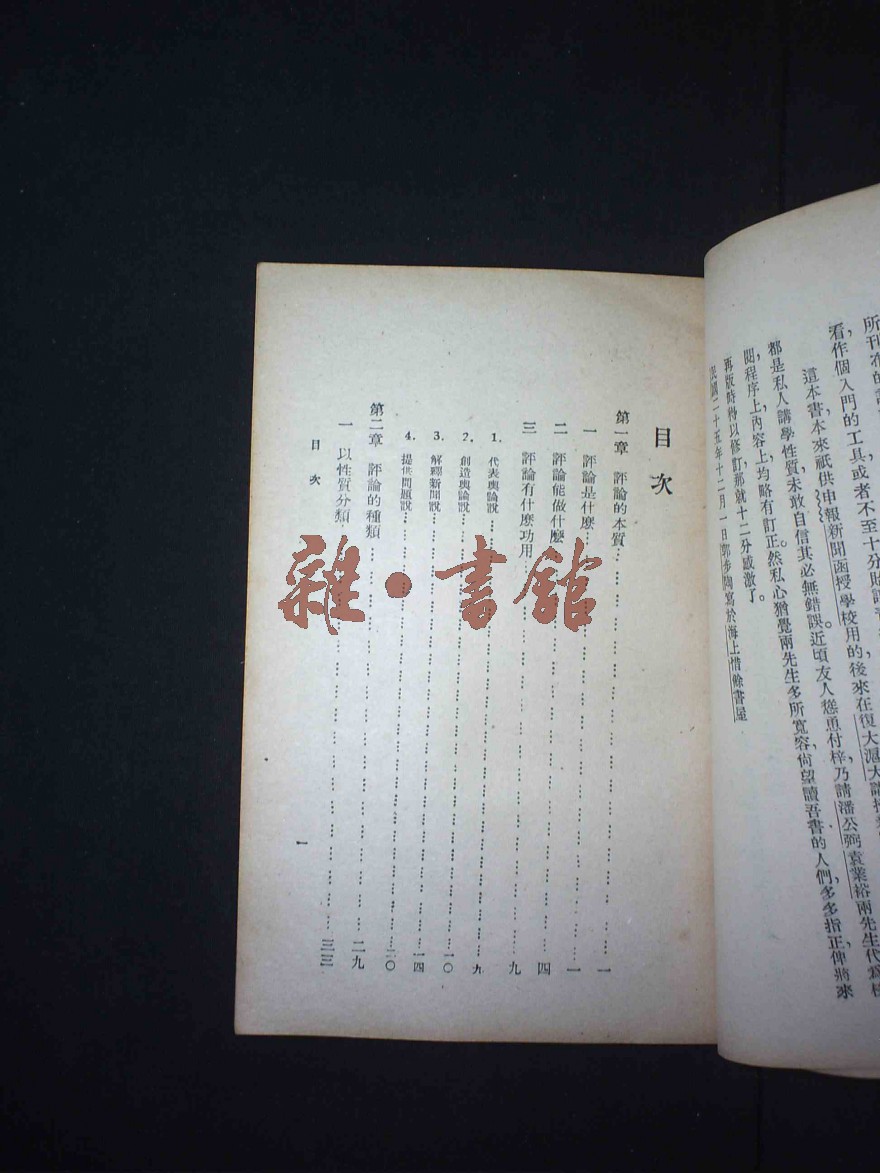 看作個入門的工具或者不至十分
這本書本來祇供申報新聞函授學校用的後來在復大滬大
乃請潘公弼袁業裕兩先生代爲
都是私人講學性質，未敢自信其必無錯誤。近頃友人慫恿付梓，
閱，程序上，內容上均略有訂正。然私心猶覺兩先生多所寬容，尙望讀吾書的人們，多多指正，俾將來
再版時得以修訂，那就十二分感激了。
民國二十五年十二月一日郭步陶寫於海上惜餘書屋
目次
第一章 評論的本質 一
一 評論是什麼 一
二 評論能做什麼 四
三 評論有什麼功用 九
1. 代表輿論說 九
2. 創造輿論說 一〇
3. 解釋新聞說 一四
4. 提供問題說 二〇
第二章 評論的種類 二九
一 以性質分類
目次
一
雜·書館